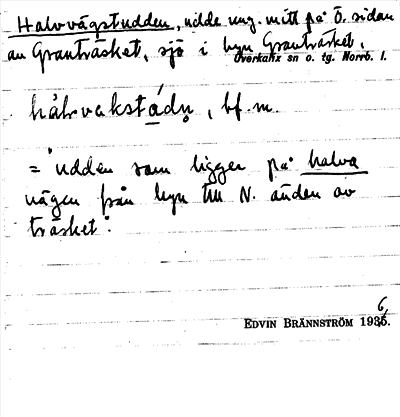 Halvvägstudden, udde ung. mitt på Ö. sidan
av Granträsket, sjö i byn Granträsket,
Överkalix sn o. tg. Norrb. l.
hålvakstádn̥, bf. m.
= udden som ligger på halva
vägen från byn till N. änden av
träsket.
EDVIN BRÄNNSTRÖM 1936.